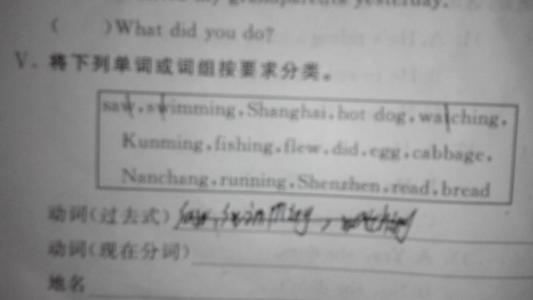 my grandparents yesterday.
( )What did you do?
V. 将下列单词或词组按要求分类。
saw,swimming,Shanghai,hot dog,watching,
Kunming,fishing,flew,did,egg,cabbage,
Nanchang,running,Shenzhen,read,bread
动词(过去式) saw, swimming, watching
动词(现在分词)
地名